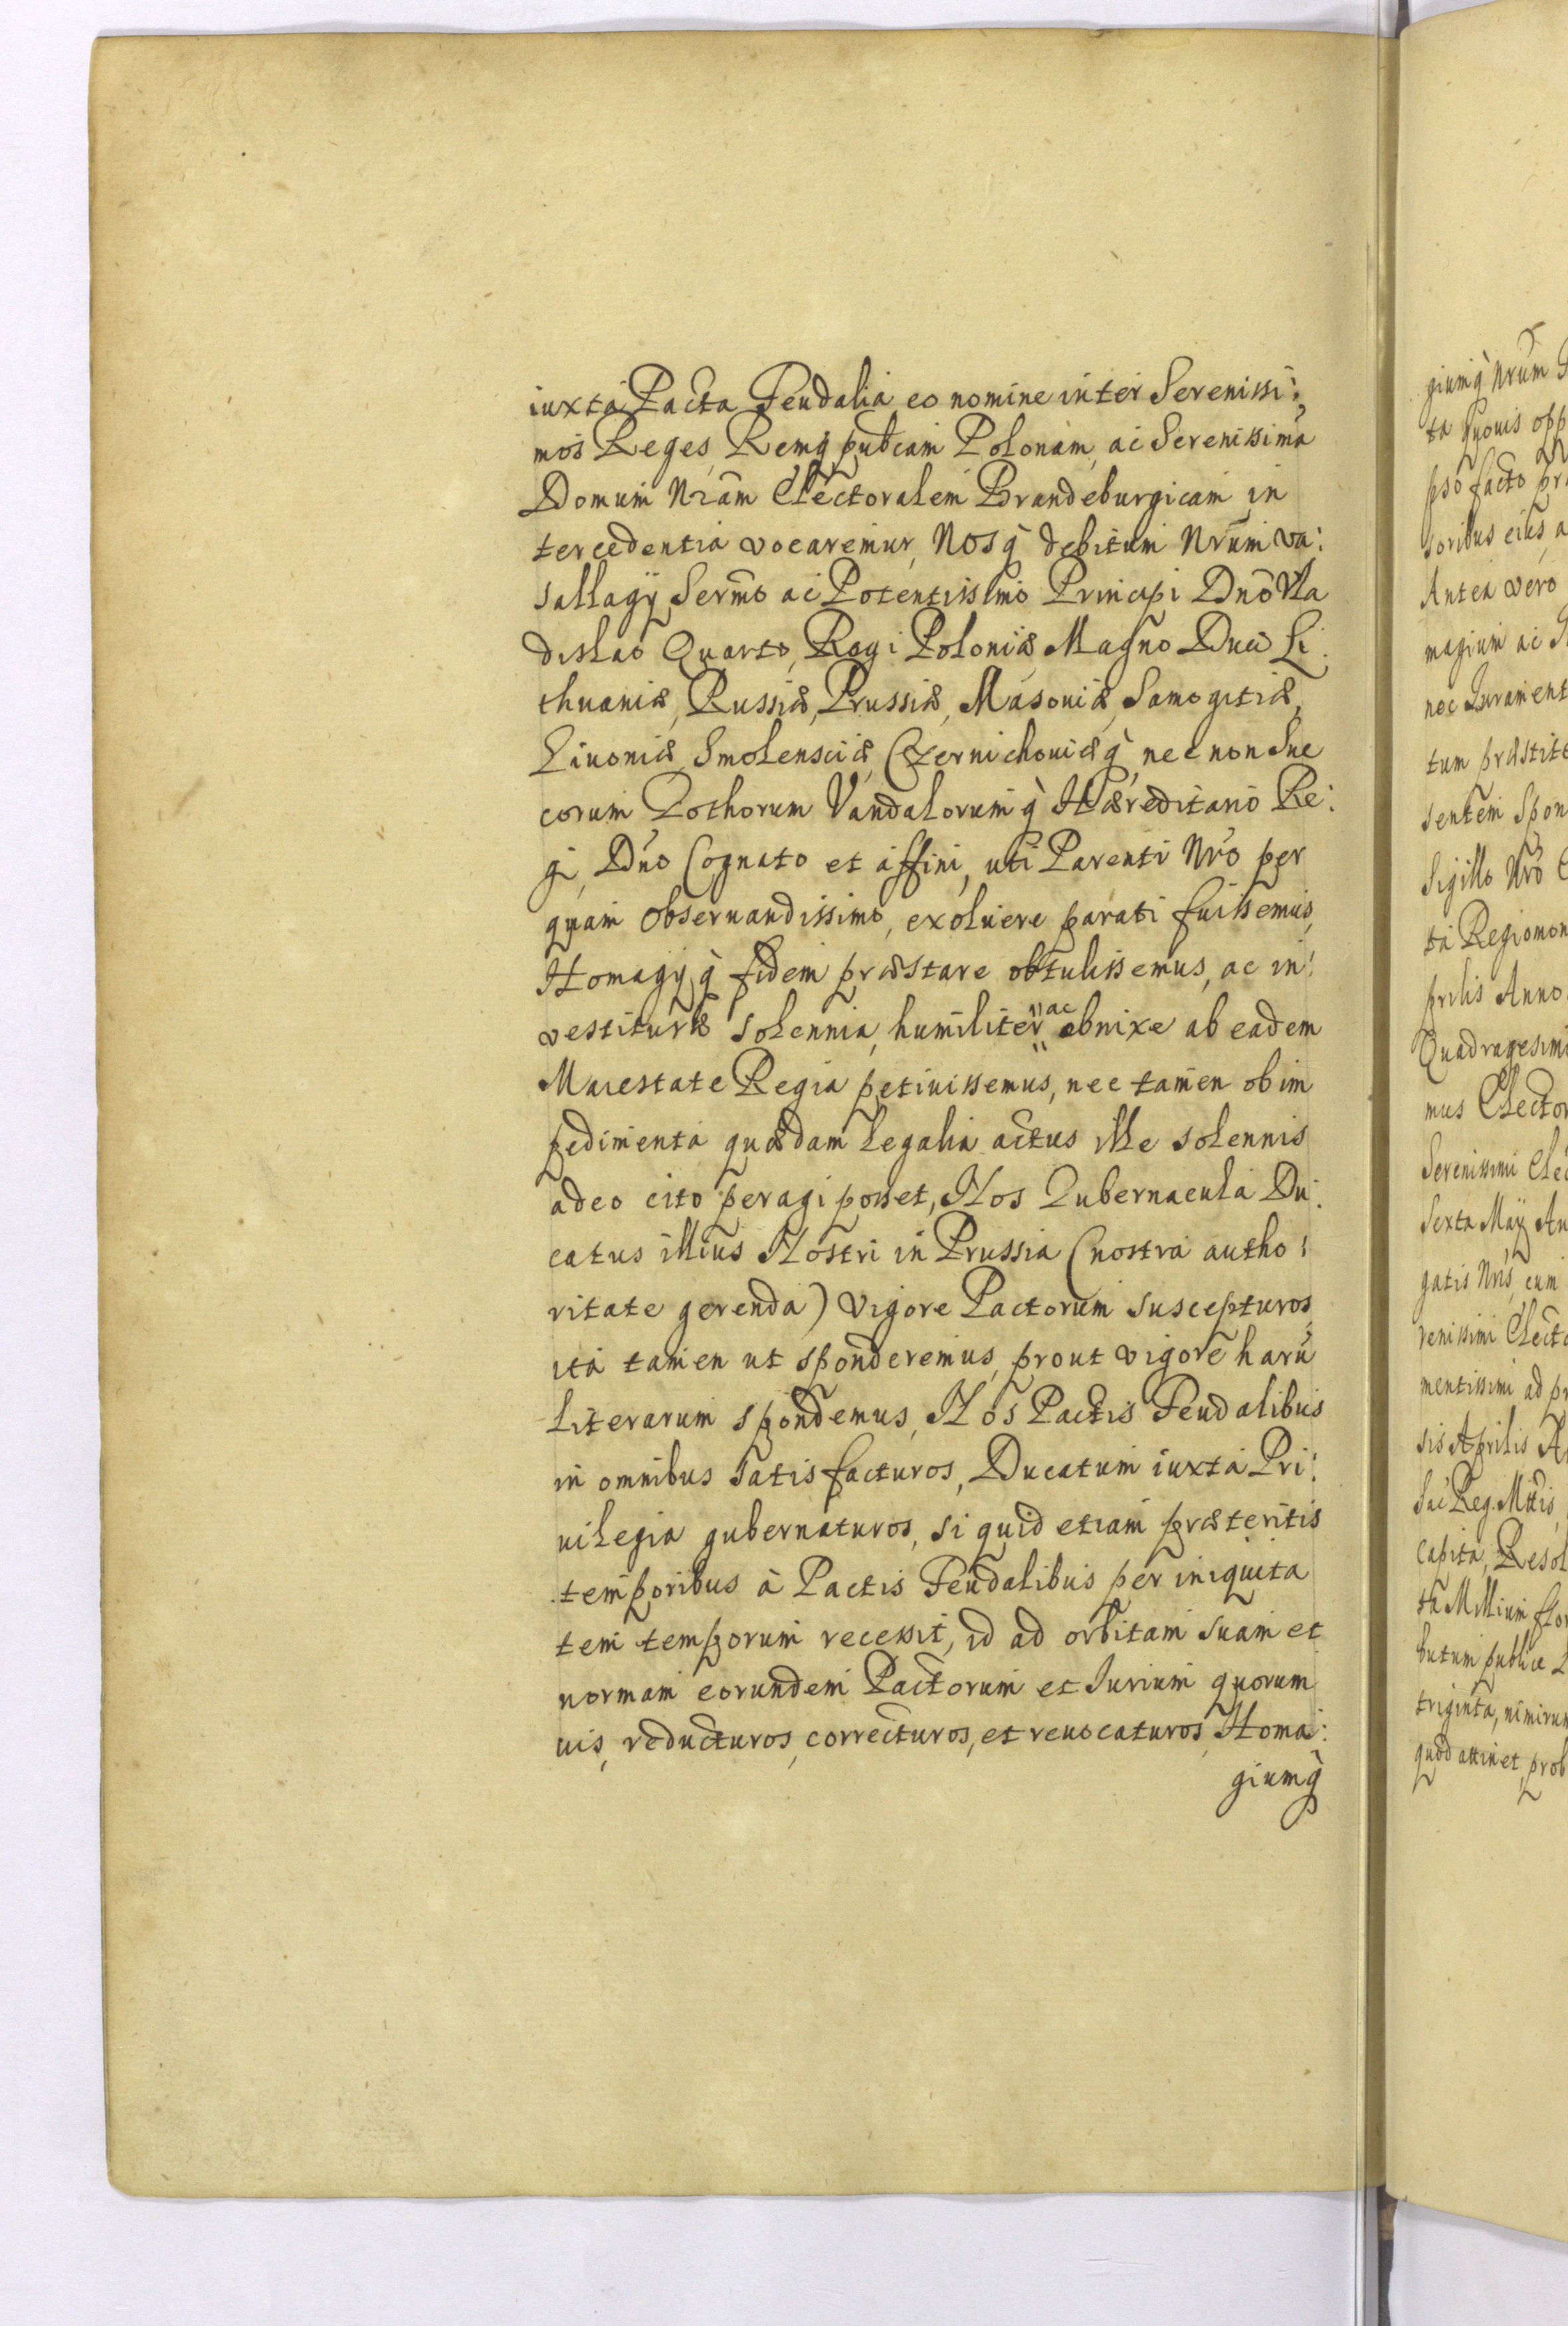 iuxta Pacta Feudalia eo nomine inter Serenissi:
mos Reges, Remq̀ pubcam Polonam, ac Serenissimā
Domum Nrām Electoralem Brandeburgicam in
tercedentia vocaremur, Nosq̀ debitum Nrūm va:
sallagÿ Sermō ac Potentissimo Principi Dnō Vla
dislao Quarto, Regi Poloniæ Magno Duci Li:
thuaniæ, Russiæ, Prussiæ, Masouiæ, Samogitiæ,
Liuoniæ Smolensciæ, Czernichouiæq̀, nec non Sue
corum Gothorum Vandalorumq̀ Hæreditario Re:
gi, Dn̄o Cognato et affini, uti Parenti Nrō per
quam obseruandissimo, exoluere parati fuissemus,
Homagÿq̀ fidem præstare obtulissemus, ac in:
vestituræ solennia, humiliter "ac obnixe ab eadem
Maiestate Regia petiuissemus, nec tamen ob im
pedimenta quædam legalia actus ille solennis
adeo cito peragi posset, Nos Gubernacula Du:
catus illius Nostri in Prussia (nostra autho:
ritate gerenda) vigore Pactorum suscepturos,
ita tamen ut sponderemus, prout vigore harū
literarum spondemus, Nos Pactis Feudalibus
in omnibus satis facturos, Ducatum iuxta Pri:
uilegia gubernaturos, si quid etiam præteritis
temporibus à Pactis Feudalibus per iniquita
tem temporum recessit, id ad orbitam suam et
normam eorundem Pactorum et Iurium quorum
uis, reducturos, correcturos, et reuocaturos, Homa:
giumq̀
giumq̀ Nrūm
ta quouis opp
pso facto
soribus eius, a
Antea vero
magium ac
nec Iurament
tum præstit
sentem Spon
Sigillo Nrō
ta Regiomon
prilis Anno
Quadragesim
mus Elector
Serenissimi Elec
Sexta Maÿ An
gatis Nrīs, cum
renissimi Electo
mentissimi ad pr
sis Aprilis A
Sac Reg. Mttis
capita, Resol
ta Millium flor
butum publice
triginta, nimirum
quod attinet, prob